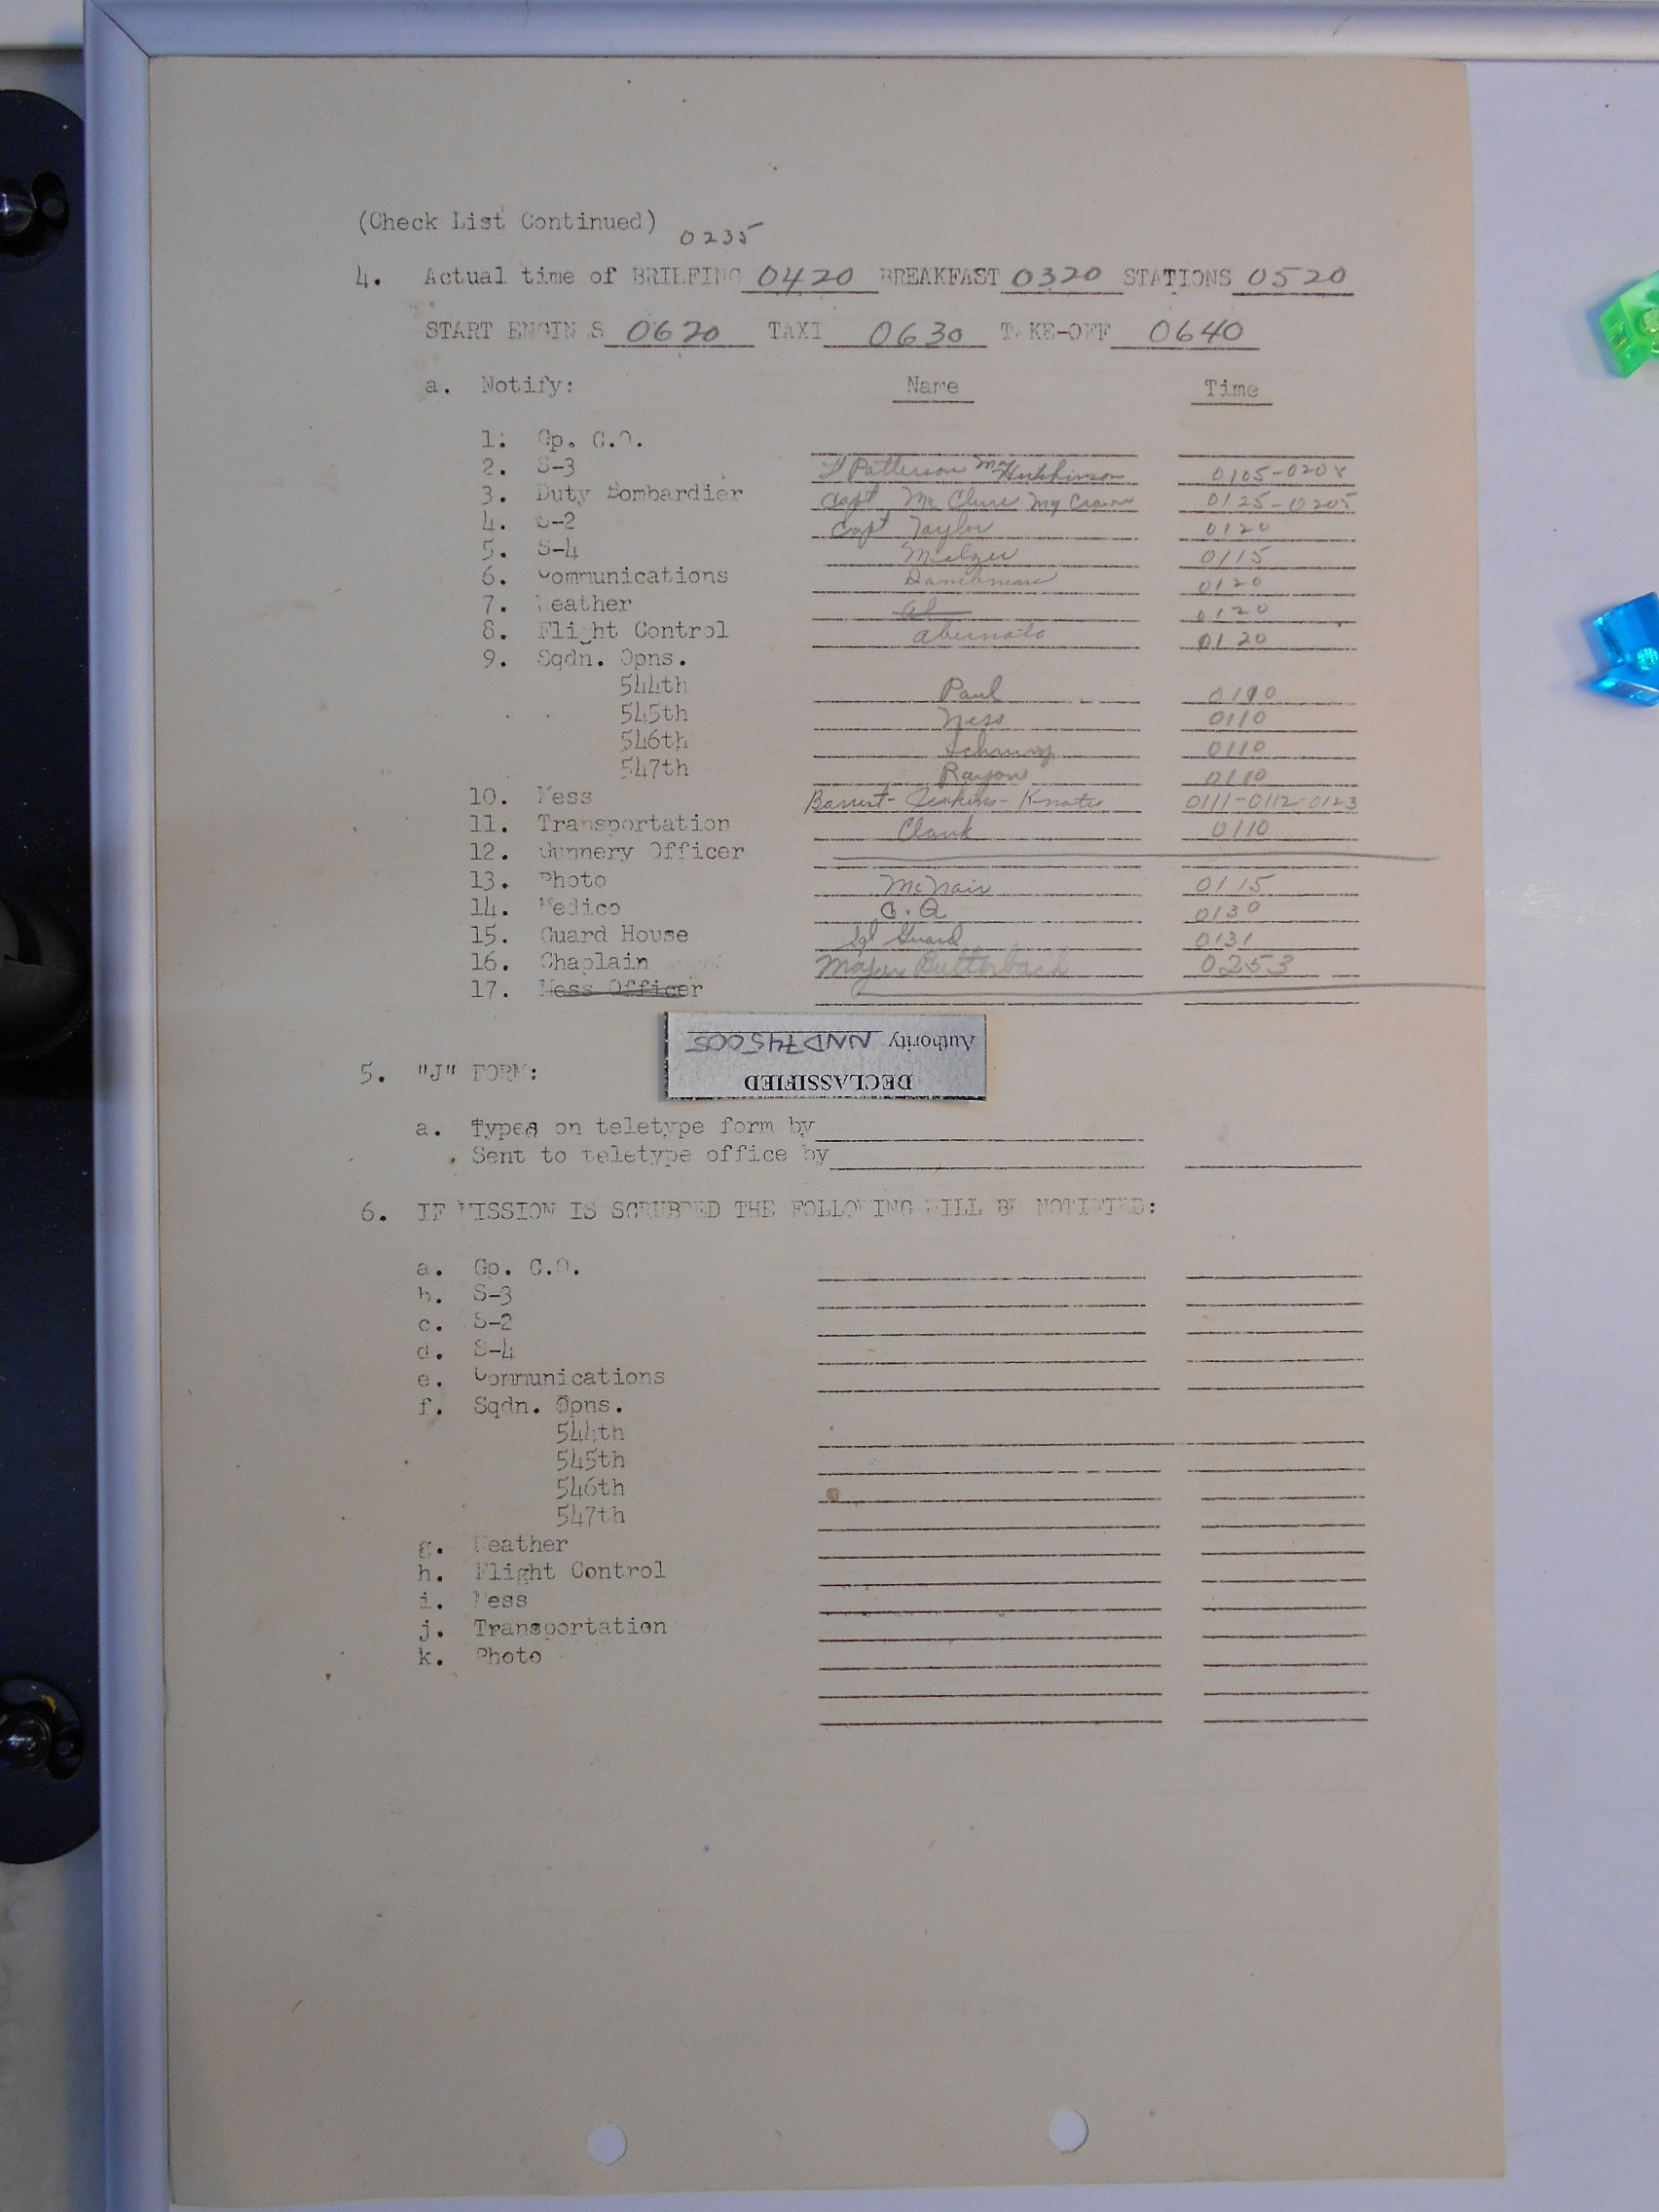 (Check List Continued) 0235
4. Actual time of BRIEFING 0420 BREAKFAST 0320 STATIONS 0520
START ENGINES 0620 TAXI 0630 TAKE-OFF 0640
a. Notify: Name Time
1. Gp. C.O.
2. S-3 Lt Patterson Maj Hutchinson 0105-020
3. Duty Bombardier Capt Mc Clure Maj Crown 0125-0205
4. S-2 Capt Taylor 0120
5. S-4 0115
6. Communications 0120
7. Weather 0120
8. Flight Control 0120
9. Sqdn. Opns.
544th Paul 0110
545th Ness 0110
546th 0110
547th 0110
10. Mess Jenkins- 0111-0112-0123
11. Transportation Clark 0110
12. Gunnery Officer
13. Photo McNair 0115
14. Medico C.Q 0130
15. Guard House Sgt Guard 0131
16. Chaplain Major Butterbach 0253
17. Mess Officer
DECLASSIFIED
Authority NND745005
5. "J" FORM:
a. Typed on teletype form by
Sent to teletype office by
6. IF MISSION IS SCRUBBED THE FOLLOWING WILL BE NOTIFIED:
a. Gp. C.O.
b. S-3
c. S-2
d. S-4
e. Communications
f. Sqdn. Opns.
544th
545th
546th
547th
g. Weather
h. Flight Control
i. Mess
j. Transportation
k. Photo